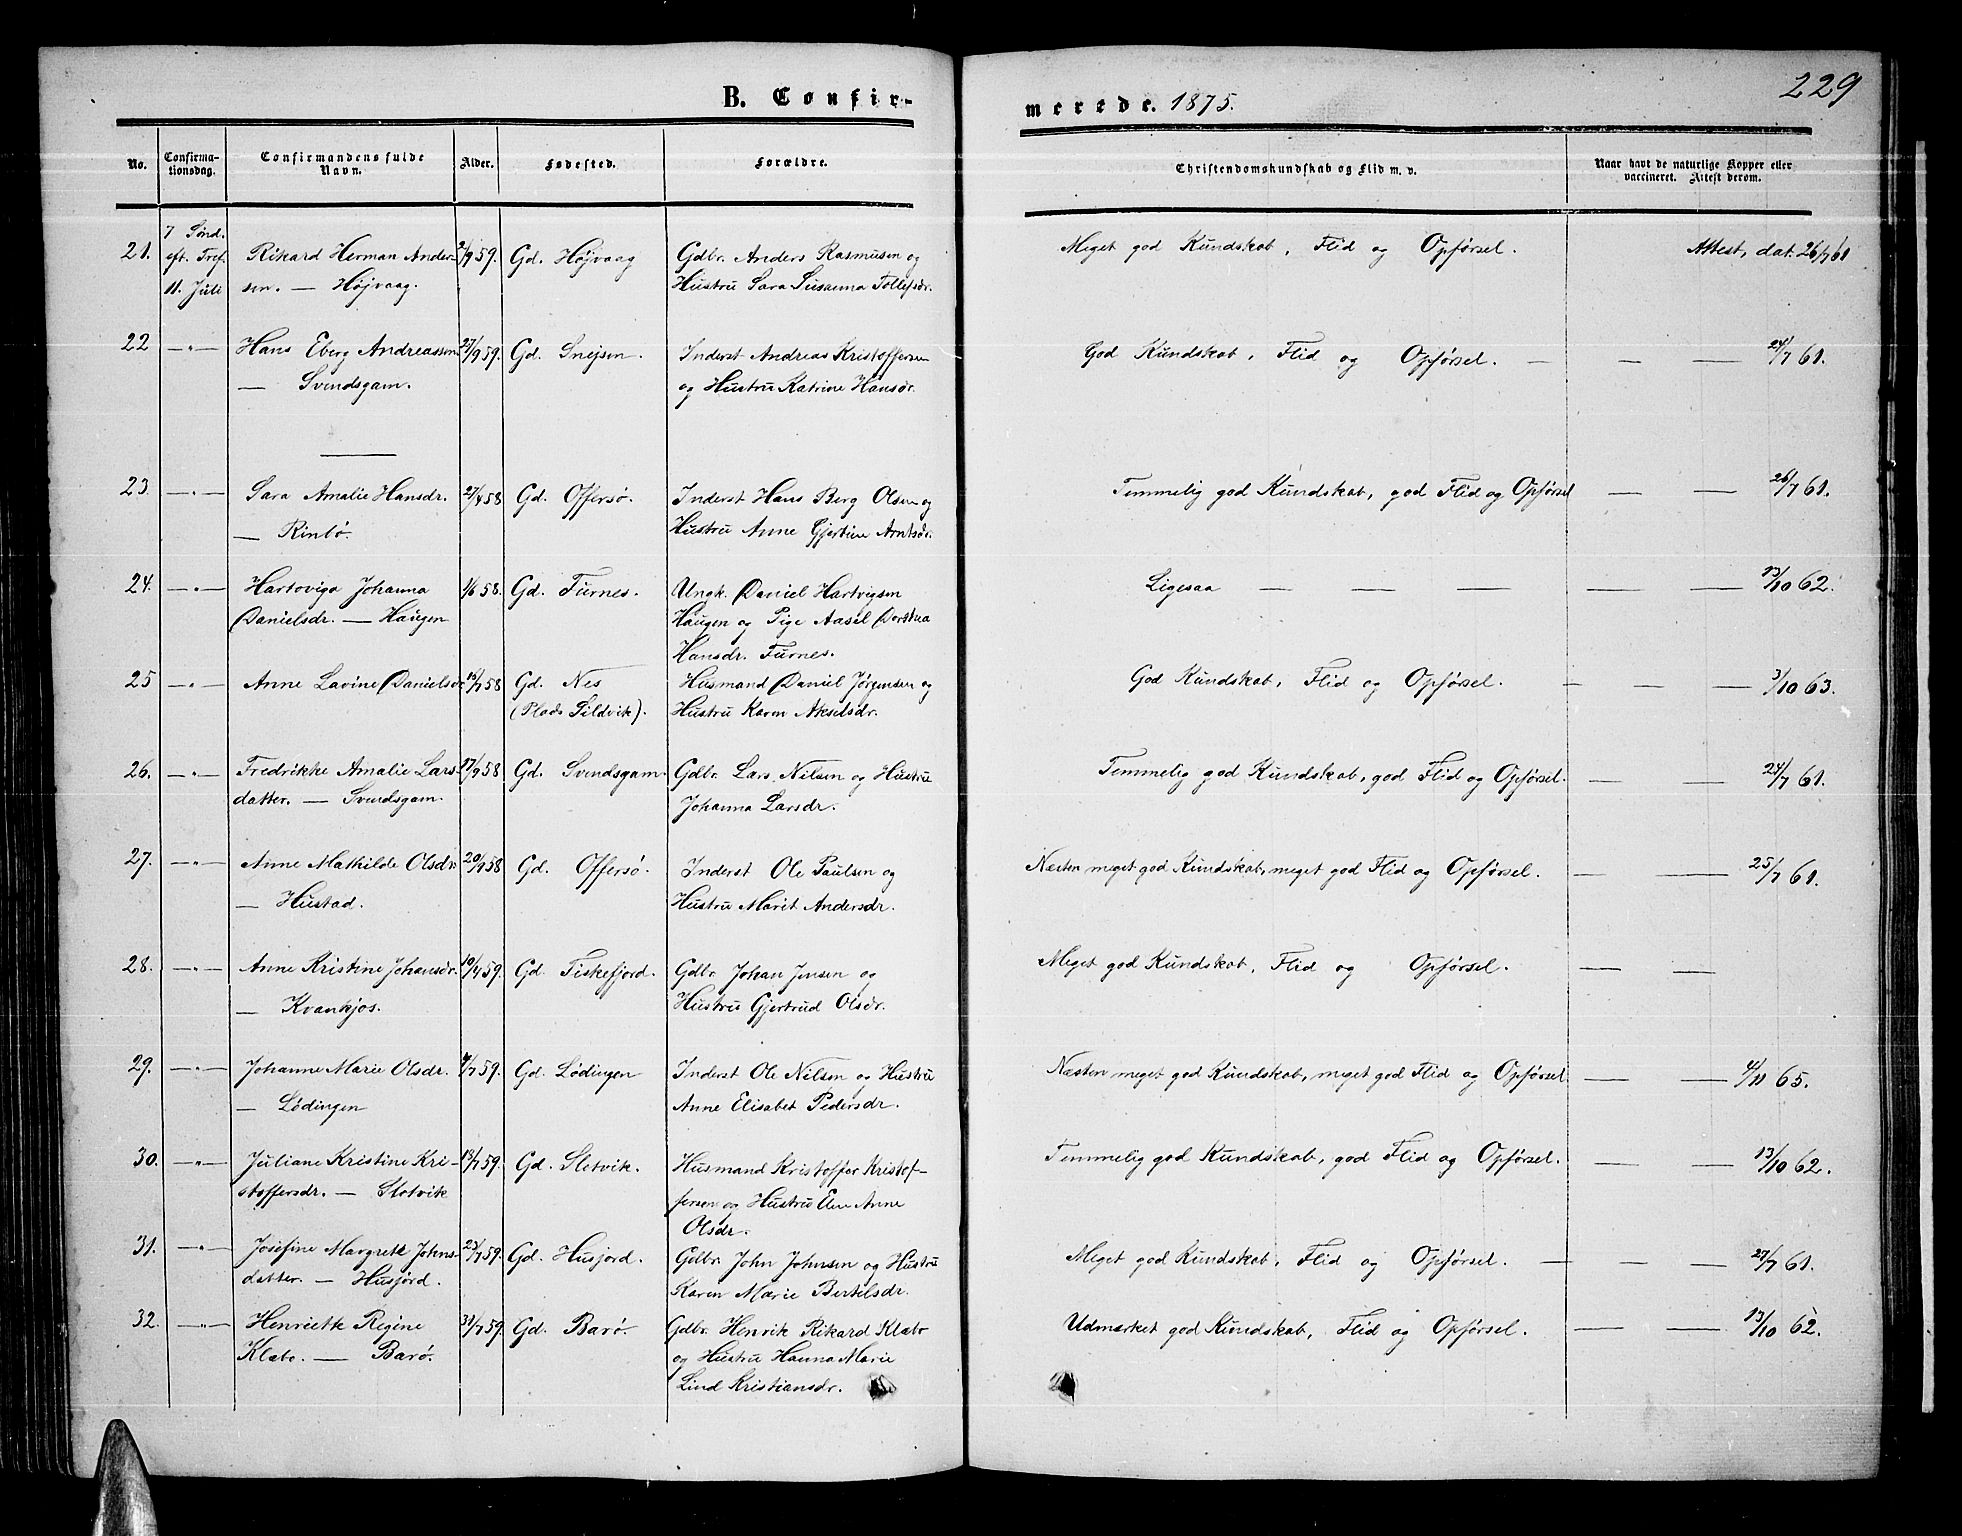 B. Confir-
merede. 1875.
229
No.
Confirma-
tionsdag.
Confirmandens fulde
Navn.
Alder.
Fødested.
Forældre.
Christendomskundskab og Flid m. v.
Naar havt de naturlige Kopper eller
vaccineret. Attest derom.
7 Sønd.
21. eft. Tref. Rikard Herman Ander- 2/9 59. Gd. Højvaag Gdbr. Anders Rasmusen og Meget god Kundskab, Flid og Opførsel. Attest, dat. 26/7 61
11. Juli sen. — Højvaag. Hustru Sara Susanna Tollefsdr.
22 —"— Hans Eberg Andreassen 27/9 59. Gd. Snejsen. Inderst Andreas Kristoffersen God Kundskab, Flid og Opførsel. — — — 24/7 61.
— Svendsgam. og Hustru Katrine Hansdr.
23. —"— Sara Amalie Hansdr. 27/4 58 Gd. Offersø. Inderst Hans Berg Olsen og Temmelig god Kundskab, god Flid og Opførsel — — 26/7 61.
— Rinbø. Hustru Anne Gjertine Arntsdr.
24. —"— Hartviga Johanna 1/6 58. Gd. Furnes. Ungk. Daniel Hartvigsen Ligesaa — — — — — 13/10 62.
Danielsdr. — Haugen Haugen og Pige Aasel Dorthea
Hansdr. Furnes.
25 —"— Anne Lavine Danielsdr 15/7 58 Gd. Nes Husmand Daniel Jørgensen og God Kundskab, Flid og Opførsel. — — — 3/10 63.
(Plads Sildvik). Hustru Karen Akselsdr.
26. —"— Fredrikke Amalie Lars- 17/9 58 Gd. Svendsgam. Gdbr. Lars Nilsen og Hustru Temmelig god Kundskab, god Flid og Opførsel. — — 24/7 61.
datter. — Svendsgam. Johanna Larsdr.
27. —"— Anne Mathilde Olsdr. 20/9 58 Gd. Offersø. Inderst Ole Paulsen og Næsten meget god Kundskab, meget god Flid og Opførsel. — — 25/7 61.
— Hustad. Hustru Marit Andersdr.
28. —"— Anne Kristine Johansdr. 10/4 59. Gd. Fiskefjord. Gdbr. Johan Jensen og Meget god Kundskab, Flid og Opførsel. — —
— Kvankjos. Hustru Gjertrud Olsdr.
29. —"— Johanne Marie Olsdr. 4/7 59. Gd. Lødingen Inderst Ole Nilsen og Hustru Næsten meget god Kundskab, meget god Flid og Opførsel — — 4/11 65.
— Lødingen Anne Elisabet Pedersdr.
30. —"— Juliane Kristine Kri- 18/7 59. Gd. Slotvik. Husmand Kristoffer Kristof- Temmelig god Kundskab, god Flid og Opførsel. — — 13/10 62.
stoffersdr. — Slotvik fersen og Hustru Elen Anne
Olsdr.
31. —"— Josefine Margrete Johns- 23/7 59. Gd. Husjord. Gdbr. John Johnsen og Hustru Meget god Kundskab, Flid og Opførsel. — — — 27/7 61.
datter. — Husjord. Karen Marie Bertelsdr.
32. —"— Henriette Regine 31/7 59. Gd. Barø. Gdbr. Henrik Rikard Klæbo Udmærket god Kundskab, Flid og Opførsel. — — 13/10 62.
Klæbo. — Barø. og Hustru Hanna Marie
Lind Kristiansdr.